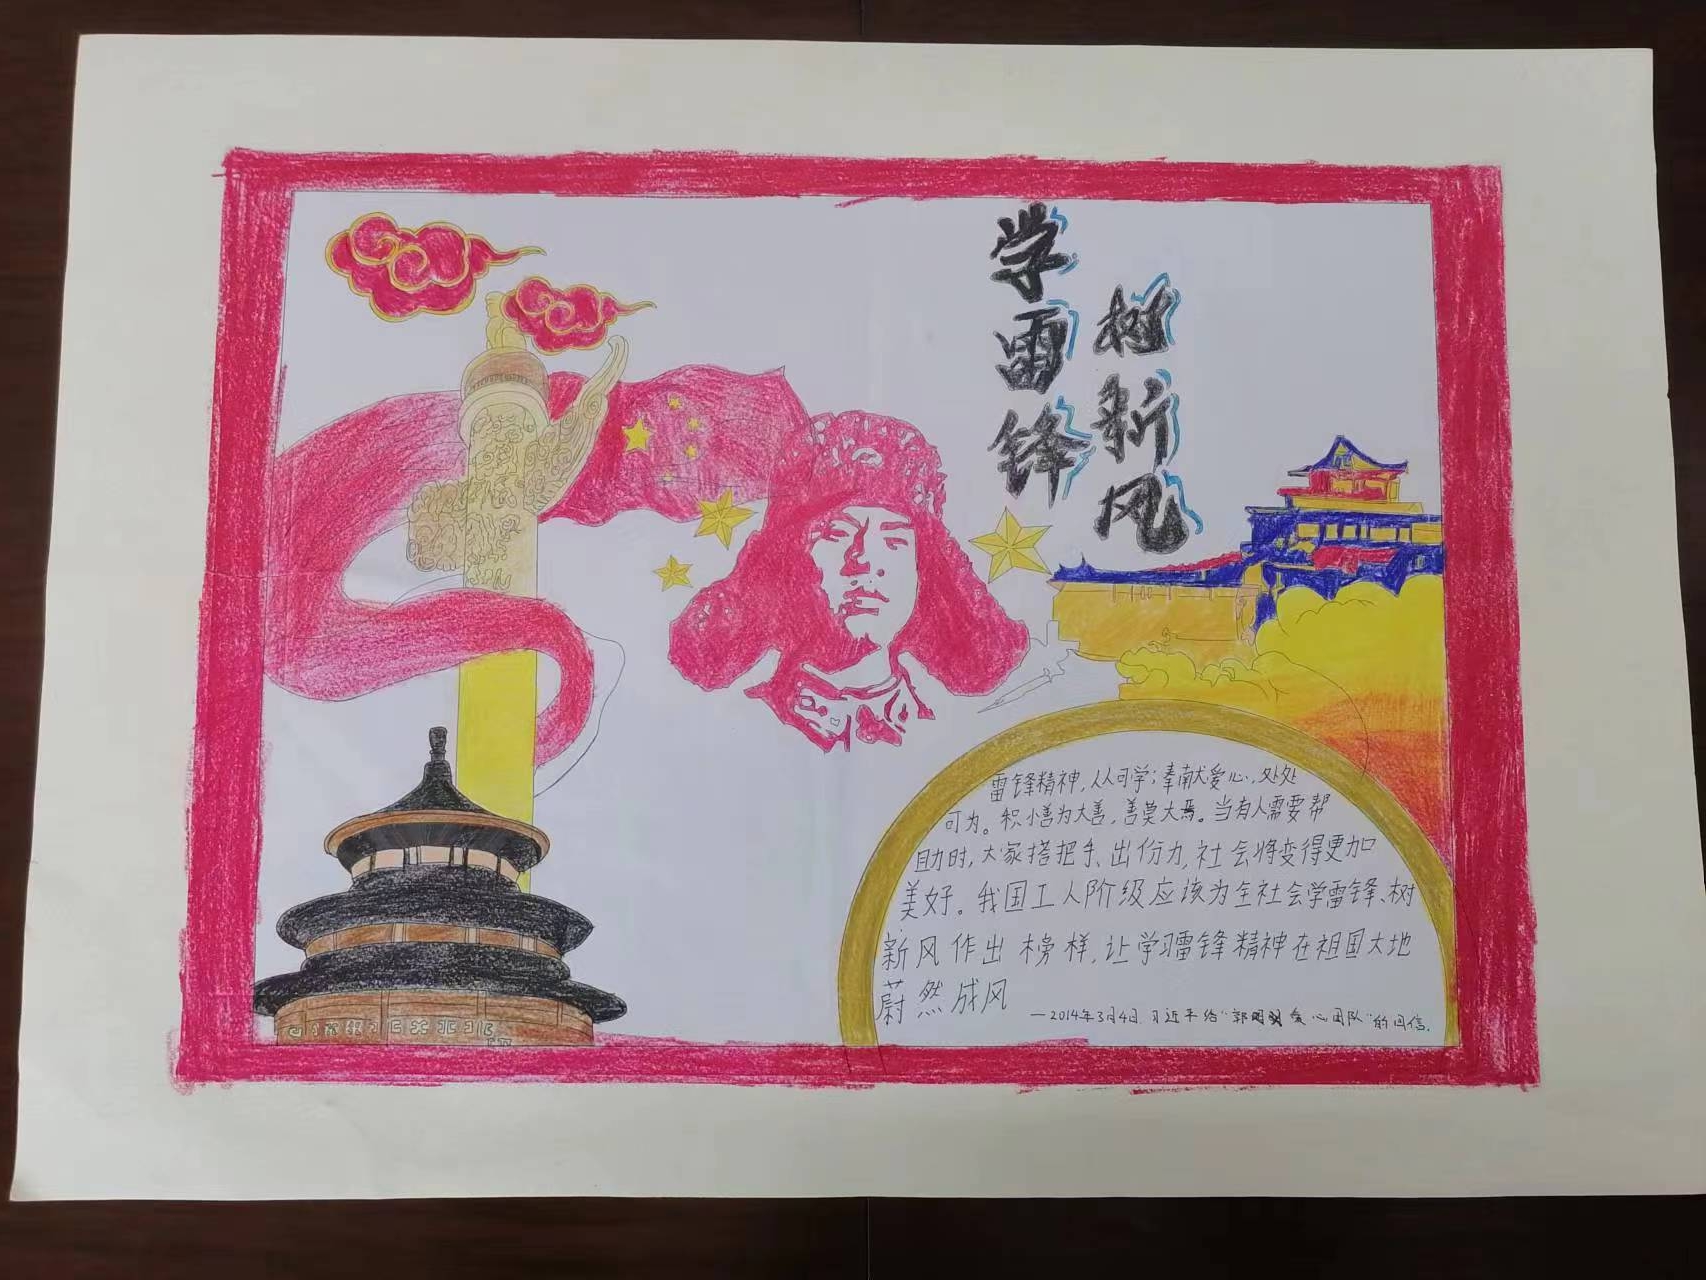 学雷锋
树新风
雷锋精神，人人可学；奉献爱心，处处
可为。积小善为大善，善莫大焉。当有人需要帮
助时，大家搭把手、出份力，社会将变得更加
美好。我国工人阶级应该为全社会学雷锋、树
新风作出榜样，让学习雷锋精神在祖国大地
蔚然成风
—2014年3月4日 习近平给“郭明义爱心团队”的回信.